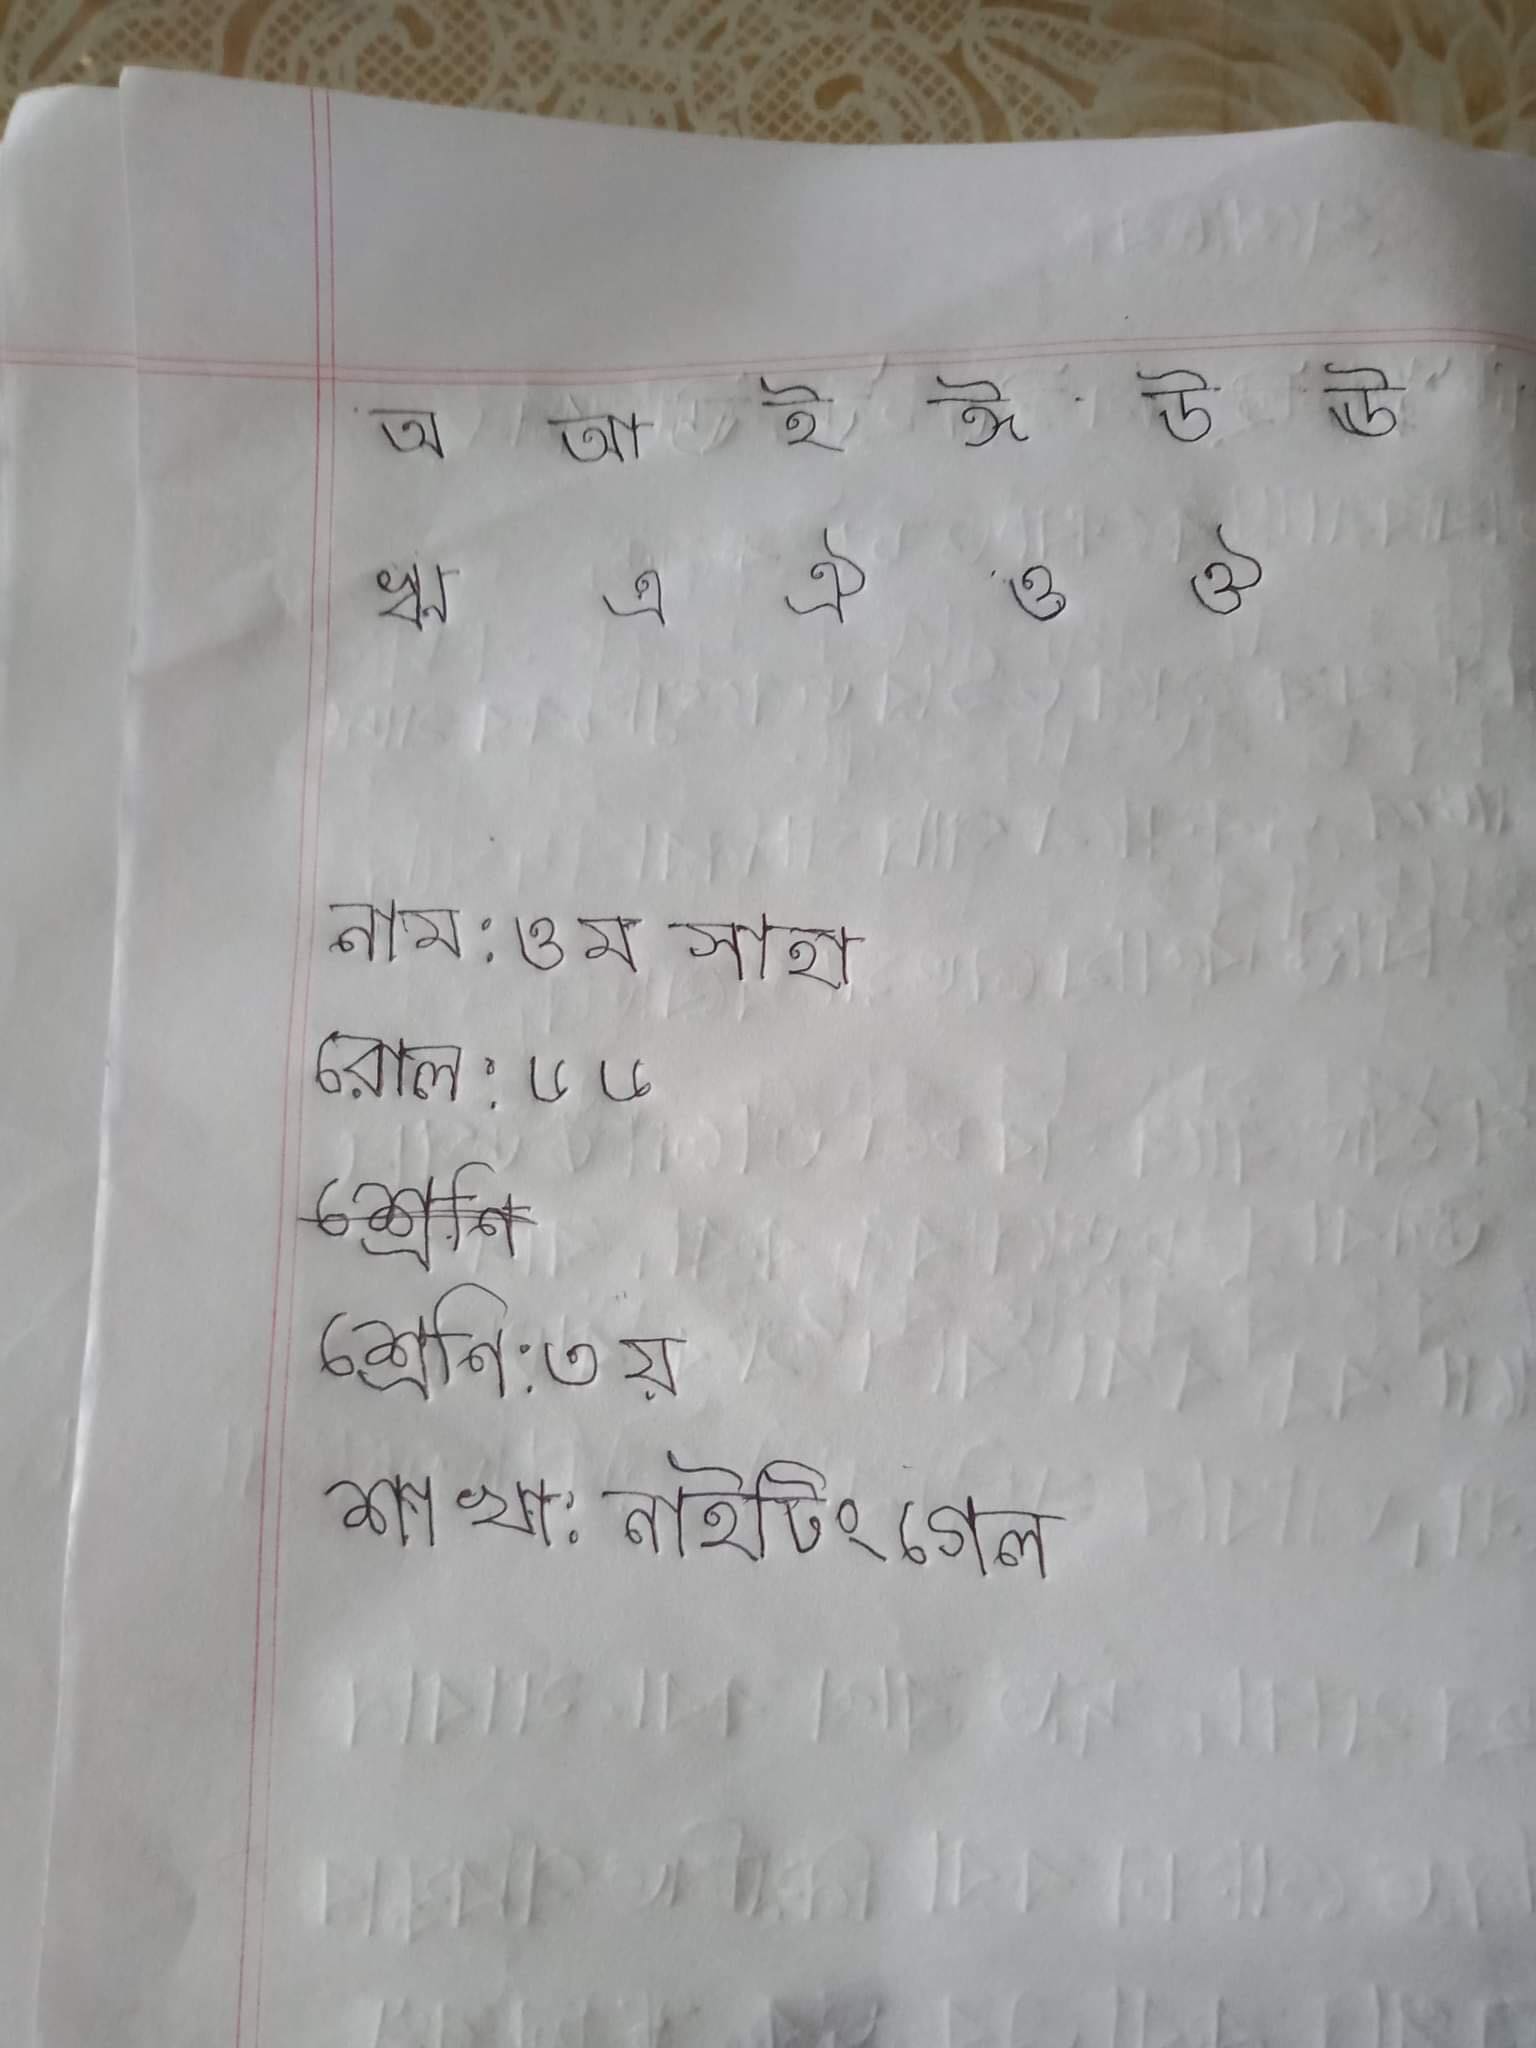 অ আ ই ঈ উ ঊ
ঋ এ ঐ ও ঔ
নাম: ওম সাহা
রোল: ৮৮
শ্রেণি
শ্রেণি: ৩য়
শাখা: নাইটিংগেল